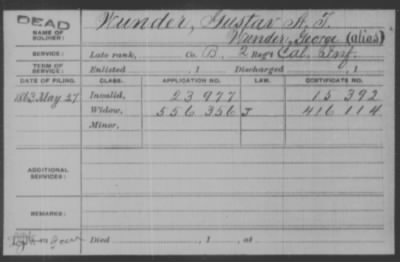 DEAD
NAME OF SOLDIER: Wunder, Gustav A. T.
Wunder, George (alias)
SERVICE: Late rank, Co. B, 2 Reg't Cal. Inf.
TERM OF SERVICE: Enlisted , 1 Discharged , 1
DATE OF FILING. CLASS. APPLICATION NO. LAW. CERTIFICATE NO.
1863 May 27 Invalid, 23977 15,392
Widow, 556356 J 416114
Minor,
ADDITIONAL SERVICES:
REMARKS:
Died , 1 , at